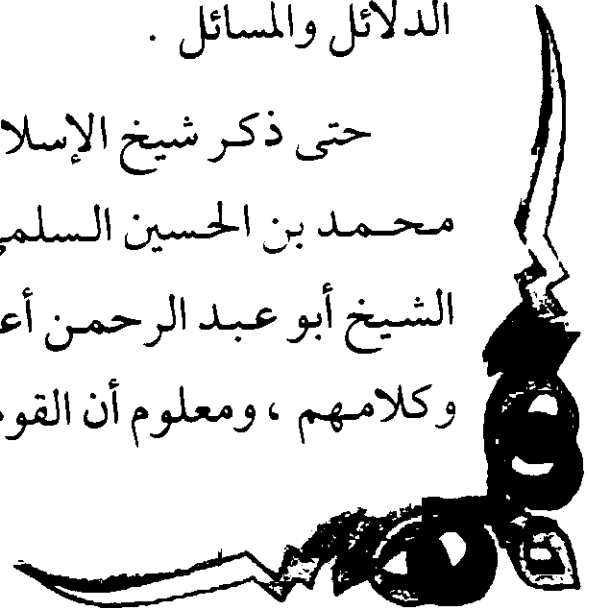 الدلائل والمسائل .
حتى ذكر شيخ الإسلا
محمد بن الحسين السلمي
الشيخ أبو عبد الرحمن أعـ
وكلامهم ، ومعلوم أن القو